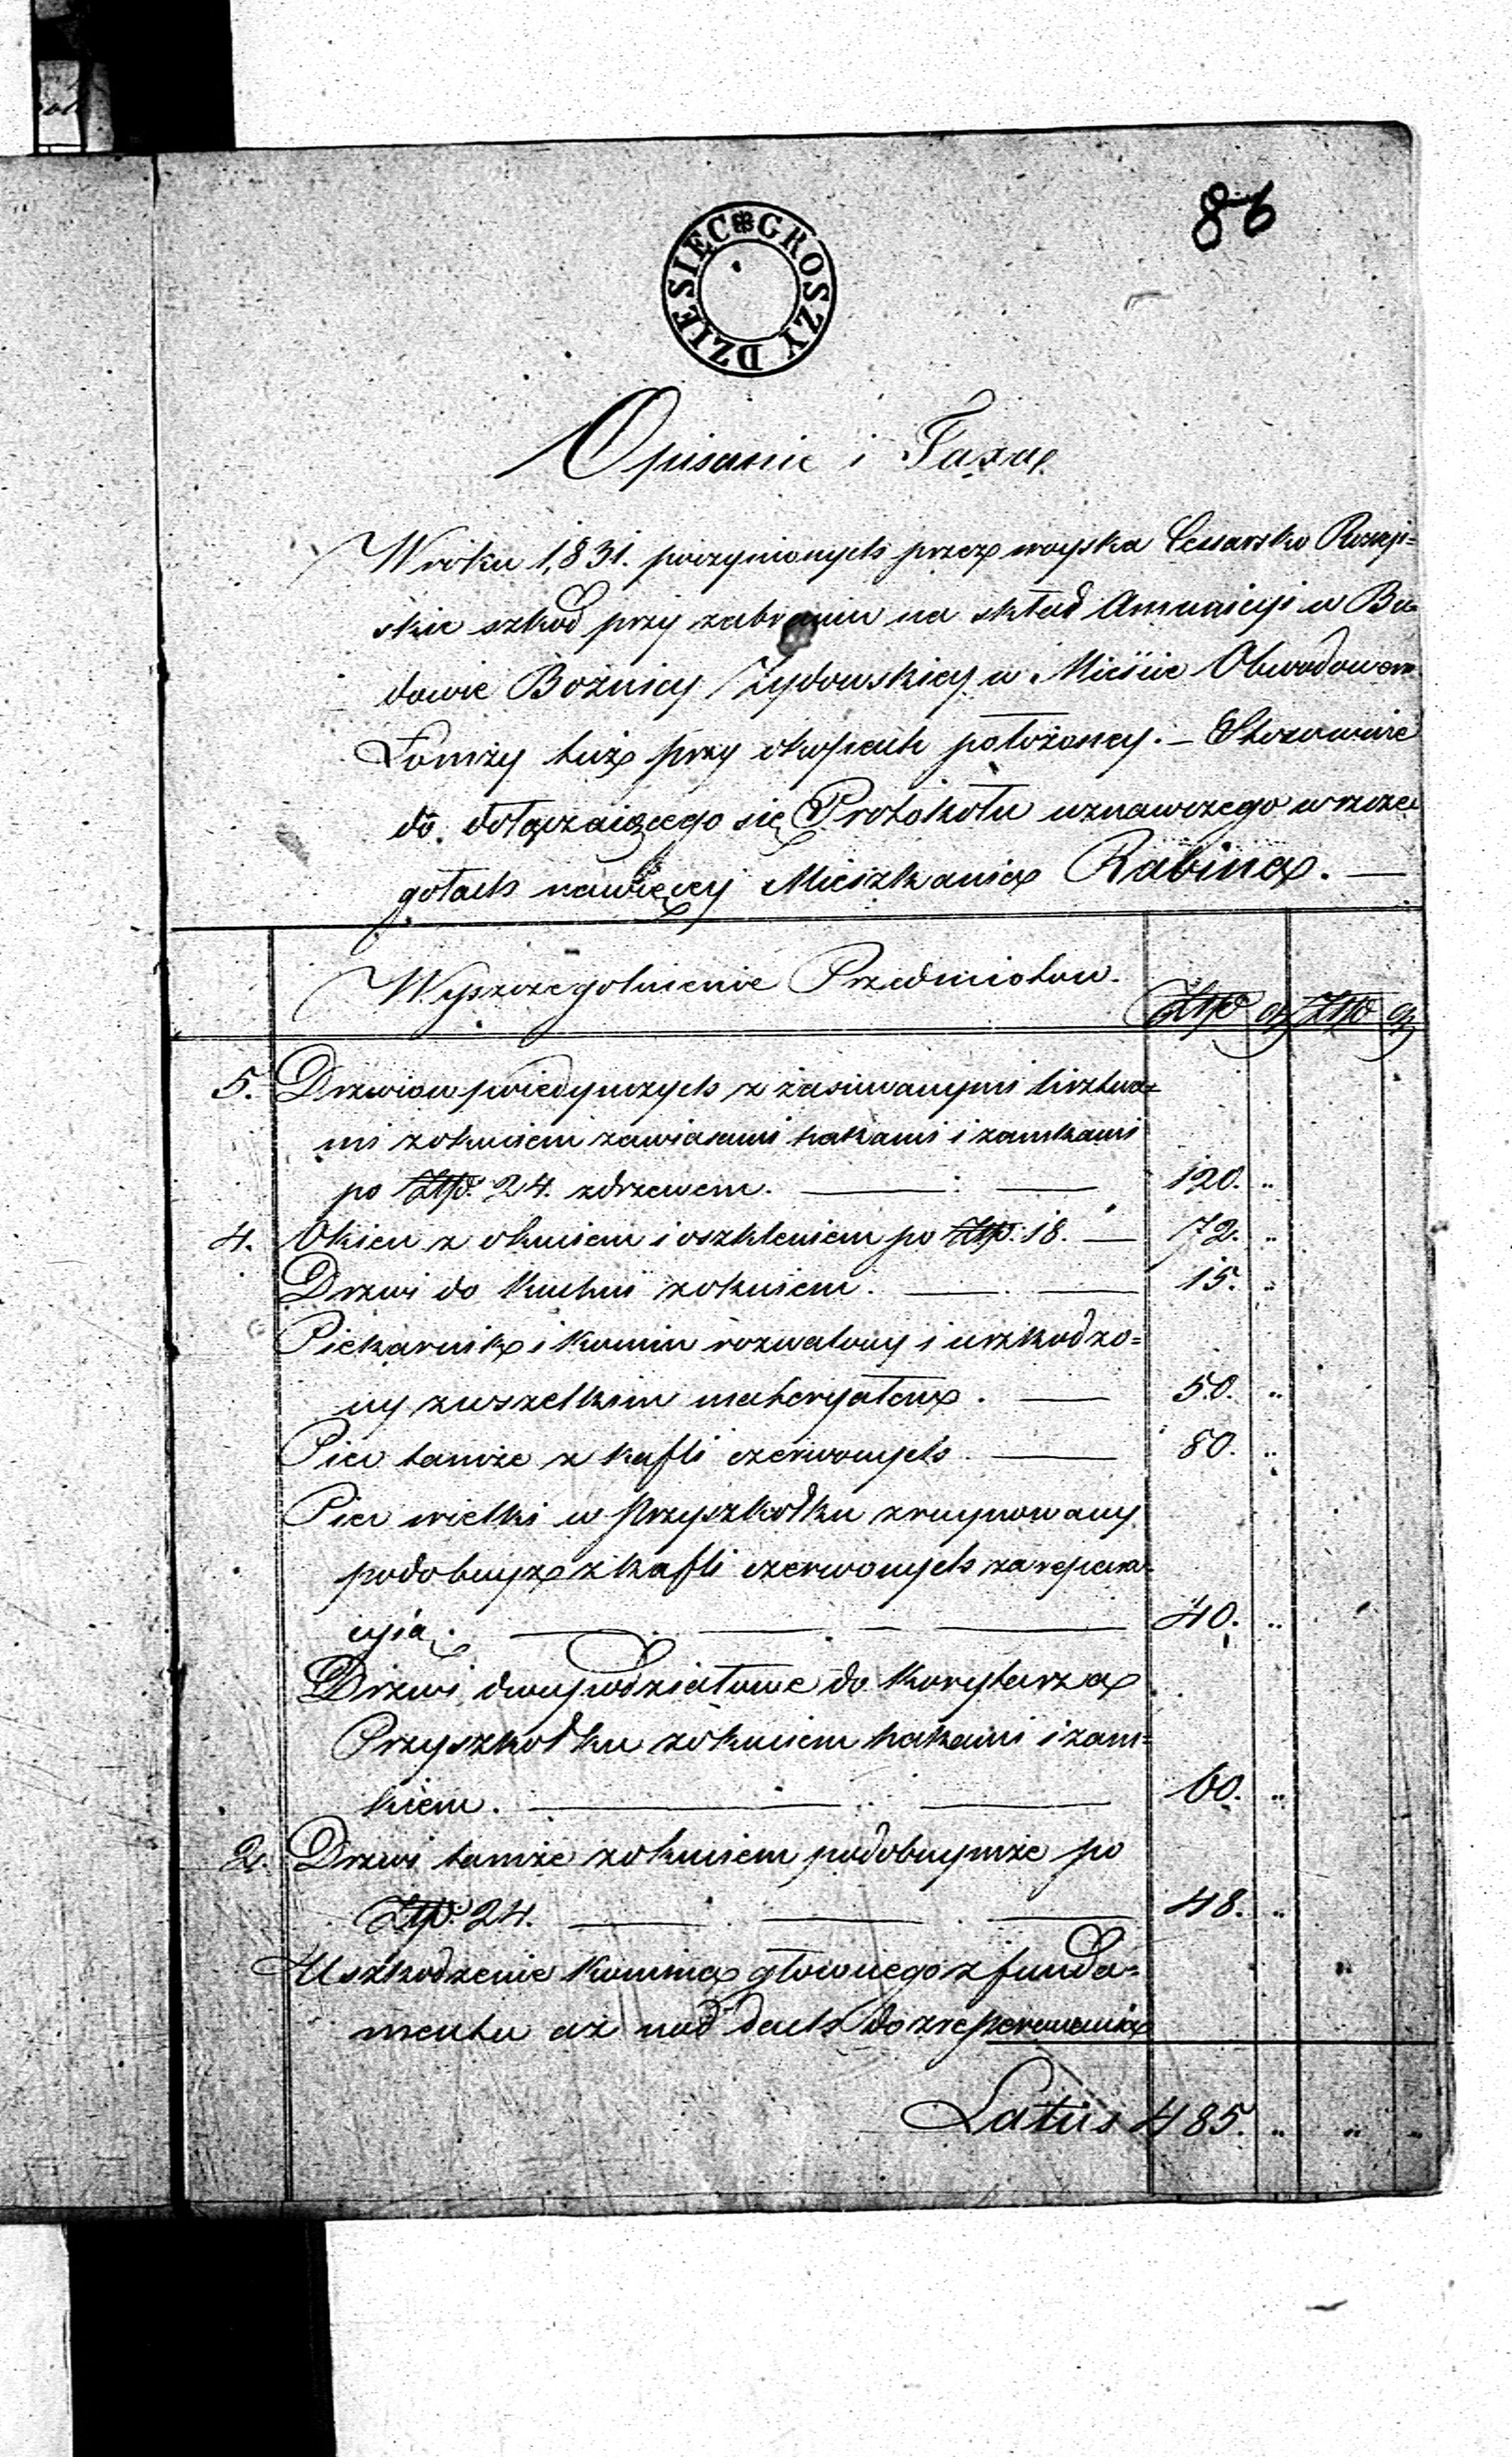 86
DZIESIĘC GROSZY
Opisanie i Taxa
W roku 1,831. poczynionych przez woyska Cesarsko Rossyi=
skie szkod przy zabraniu na skład Amunicyi w Bu=
dowie Bożnicy Żydowskiey w Mieście Obwodowem
Łomży tuż przy okopach położoney. – Stosownie
do dołączaiącego się Protokołu uznawczego w szcze
gołach nawięcey Mieszkania Rabina. —
Wyszczegolnienie Przedmiotow. Złp gr Złp gr
5. Drzwiow poiedynczych z zasuwanymi lisztwa=
mi z okuciem zawiasami hakami i zamkami
po Złp. 24. z drzewem. — 120. "
4. Okien z okuciem i oszkleniem po Złp. 18. — 72. "
Drzwi do Kuchni z okuciem. — 15. "
Piekarnik i Komin rozwalony i uszkodzo=
ny z wszelkim materyałem. — 50. "
Piec tamże z kafli czerwonych. — 80. "
Piec wielki w Przyszkołku zruynowany
podobnyż z kafli czerwonych za repera=
cyią. — 40. "
Drzwi dwupodziałowe do Korytarza
Przyszkołku z okuciem hakami i zam=
kiem. — 60. "
2. Drzwi tamże z okuciem podobnymże po
Złp. 24. — 48. "
Uszkodzenie Komina głownego z funda=
mentu aż nad dach do zreperowania
Latus 485. " " "